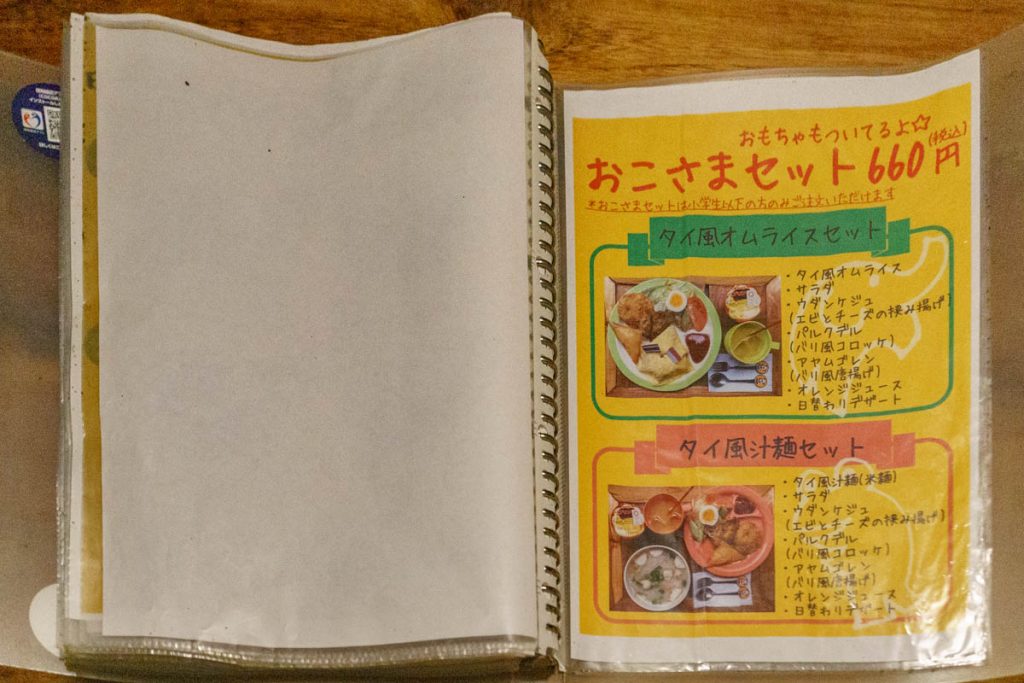 おもちゃもついてるよ☆
おこさまセット 660円(税込)
*おこさまセットは小学生以下の方のみご注文いただけます
タイ風オムライスセット
・タイ風オムライス
・サラダ
・ウダンケジュ
(エビとチーズの挟み揚げ)
・パルクデル
(バリ風コロッケ)
・アヤムゴレン
(バリ風唐揚げ)
・オレンジジュース
・日替わりデザート
タイ風汁麺セット
・タイ風汁麺(米麺)
・サラダ
・ウダンケジュ
(エビとチーズの挟み揚げ)
・パルクデル
(バリ風コロッケ)
・アヤムゴレン
(バリ風唐揚げ)
・オレンジジュース
・日替わりデザート